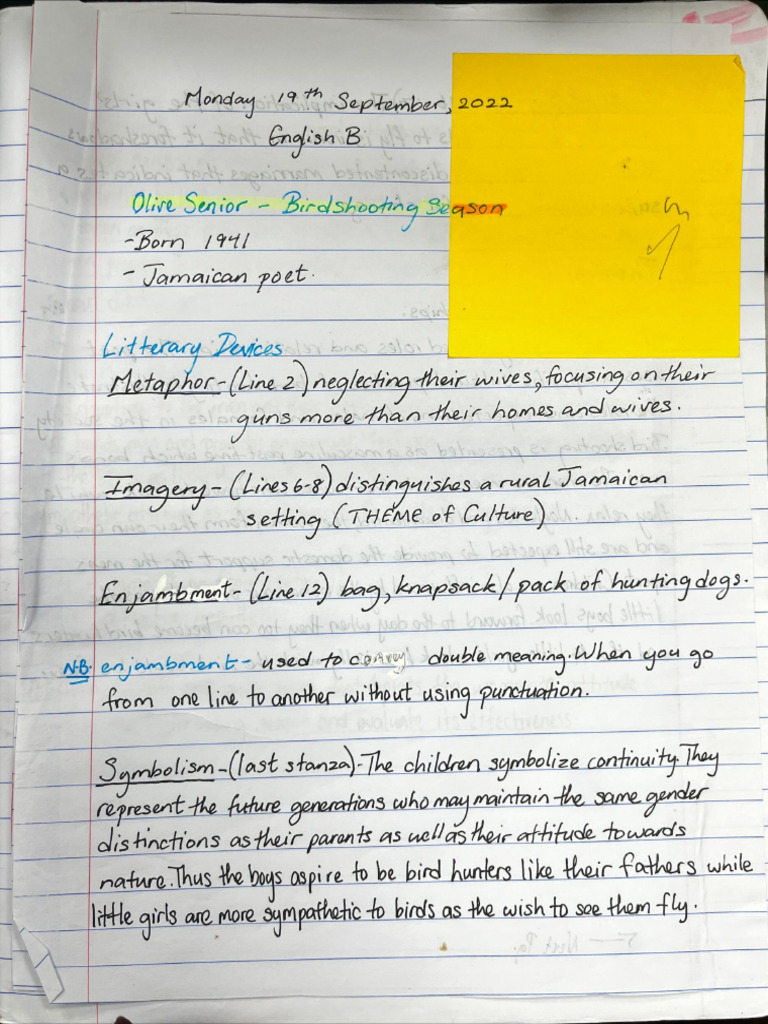 Monday 19th September, 2022
English B
Olive Senior - Birdshooting Season
- Born 1941
- Jamaican poet.
Litterary Devices
Metaphor - (Line 2) neglecting their wives, focusing on their
guns more than their homes and wives.
Imagery - (Lines 6-8) distinguishes a rural Jamaican
setting (THEME of Culture).
Enjambment - (Line 12) bag, knapsack / pack of hunting dogs.
N.B. enjambment - used to convey double meaning. When you go
from one line to another without using punctuation.
Symbolism - (last stanza) - The children symbolize continuity. They
represent the future generations who may maintain the same gender
distinctions as their parents as well as their attitude towards
nature. Thus the boys aspire to be bird hunters like their fathers while
little girls are more sympathetic to birds as the wish to see them fly.